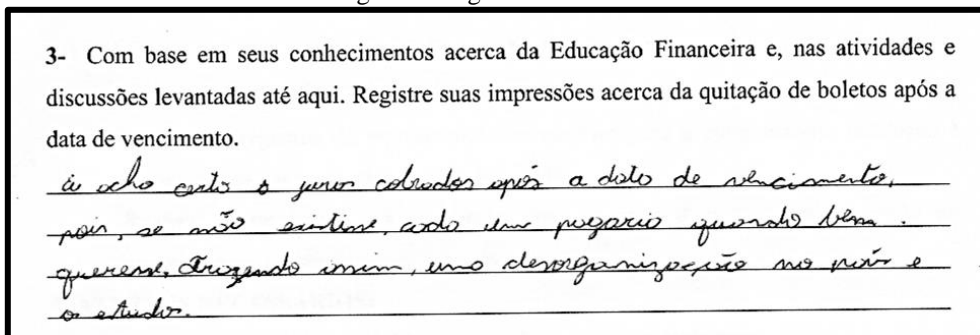 3- Com base em seus conhecimentos acerca da Educação Financeira e, nas atividades e
discussões levantadas até aqui. Registre suas impressões acerca da quitação de boletos após a
data de vencimento.
acho certo o juros cobrados após a data de vencimento,
pois, se não existisse, cada um pagaria quando bem
queresse, trazendo assim, uma desorganização no país e
os estados.